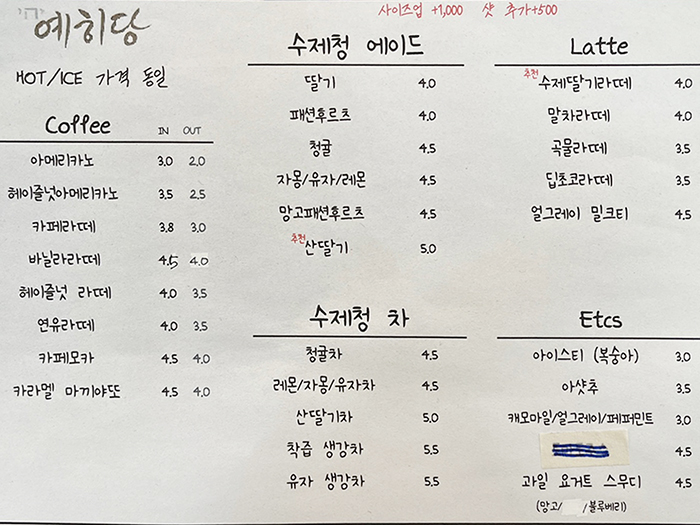 예히당
사이즈업 +1,000 샷 추가+500
HOT/ICE 가격 동일
Coffee IN OUT
아메리카노 3.0 2.0
헤이즐넛아메리카노 3.5 2.5
카페라떼 3.8 3.0
바닐라라떼 4.5 4.0
헤이즐넛 라떼 4.0 3.5
연유라떼 4.0 3.5
카페모카 4.5 4.0
카라멜 마끼야또 4.5 4.0
수제청 에이드
딸기 4.0
패션후르츠 4.0
청귤 4.5
자몽/유자/레몬 4.5
망고패션후르츠 4.5
추천 산딸기 5.0
수제청 차
청귤차 4.5
레몬/자몽/유자차 4.5
산딸기차 5.0
착즙 생강차 5.5
유자 생강차 5.5
Latte
추천 수제딸기라떼 4.0
말차라떼 4.0
곡물라떼 3.5
딥초코라떼 3.5
얼그레이 밀크티 4.5
Etcs
아이스티 (복숭아) 3.0
아샷추 3.5
캐모마일/얼그레이/페퍼민트 3.0
4.5
과일 요거트 스무디 4.5
(망고/ /블루베리)